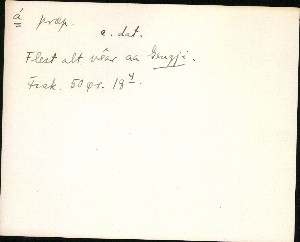 á præp.
c. dat.
Flest alt vêar aa Gengji.
Fisk. 50 ør. 18 4.